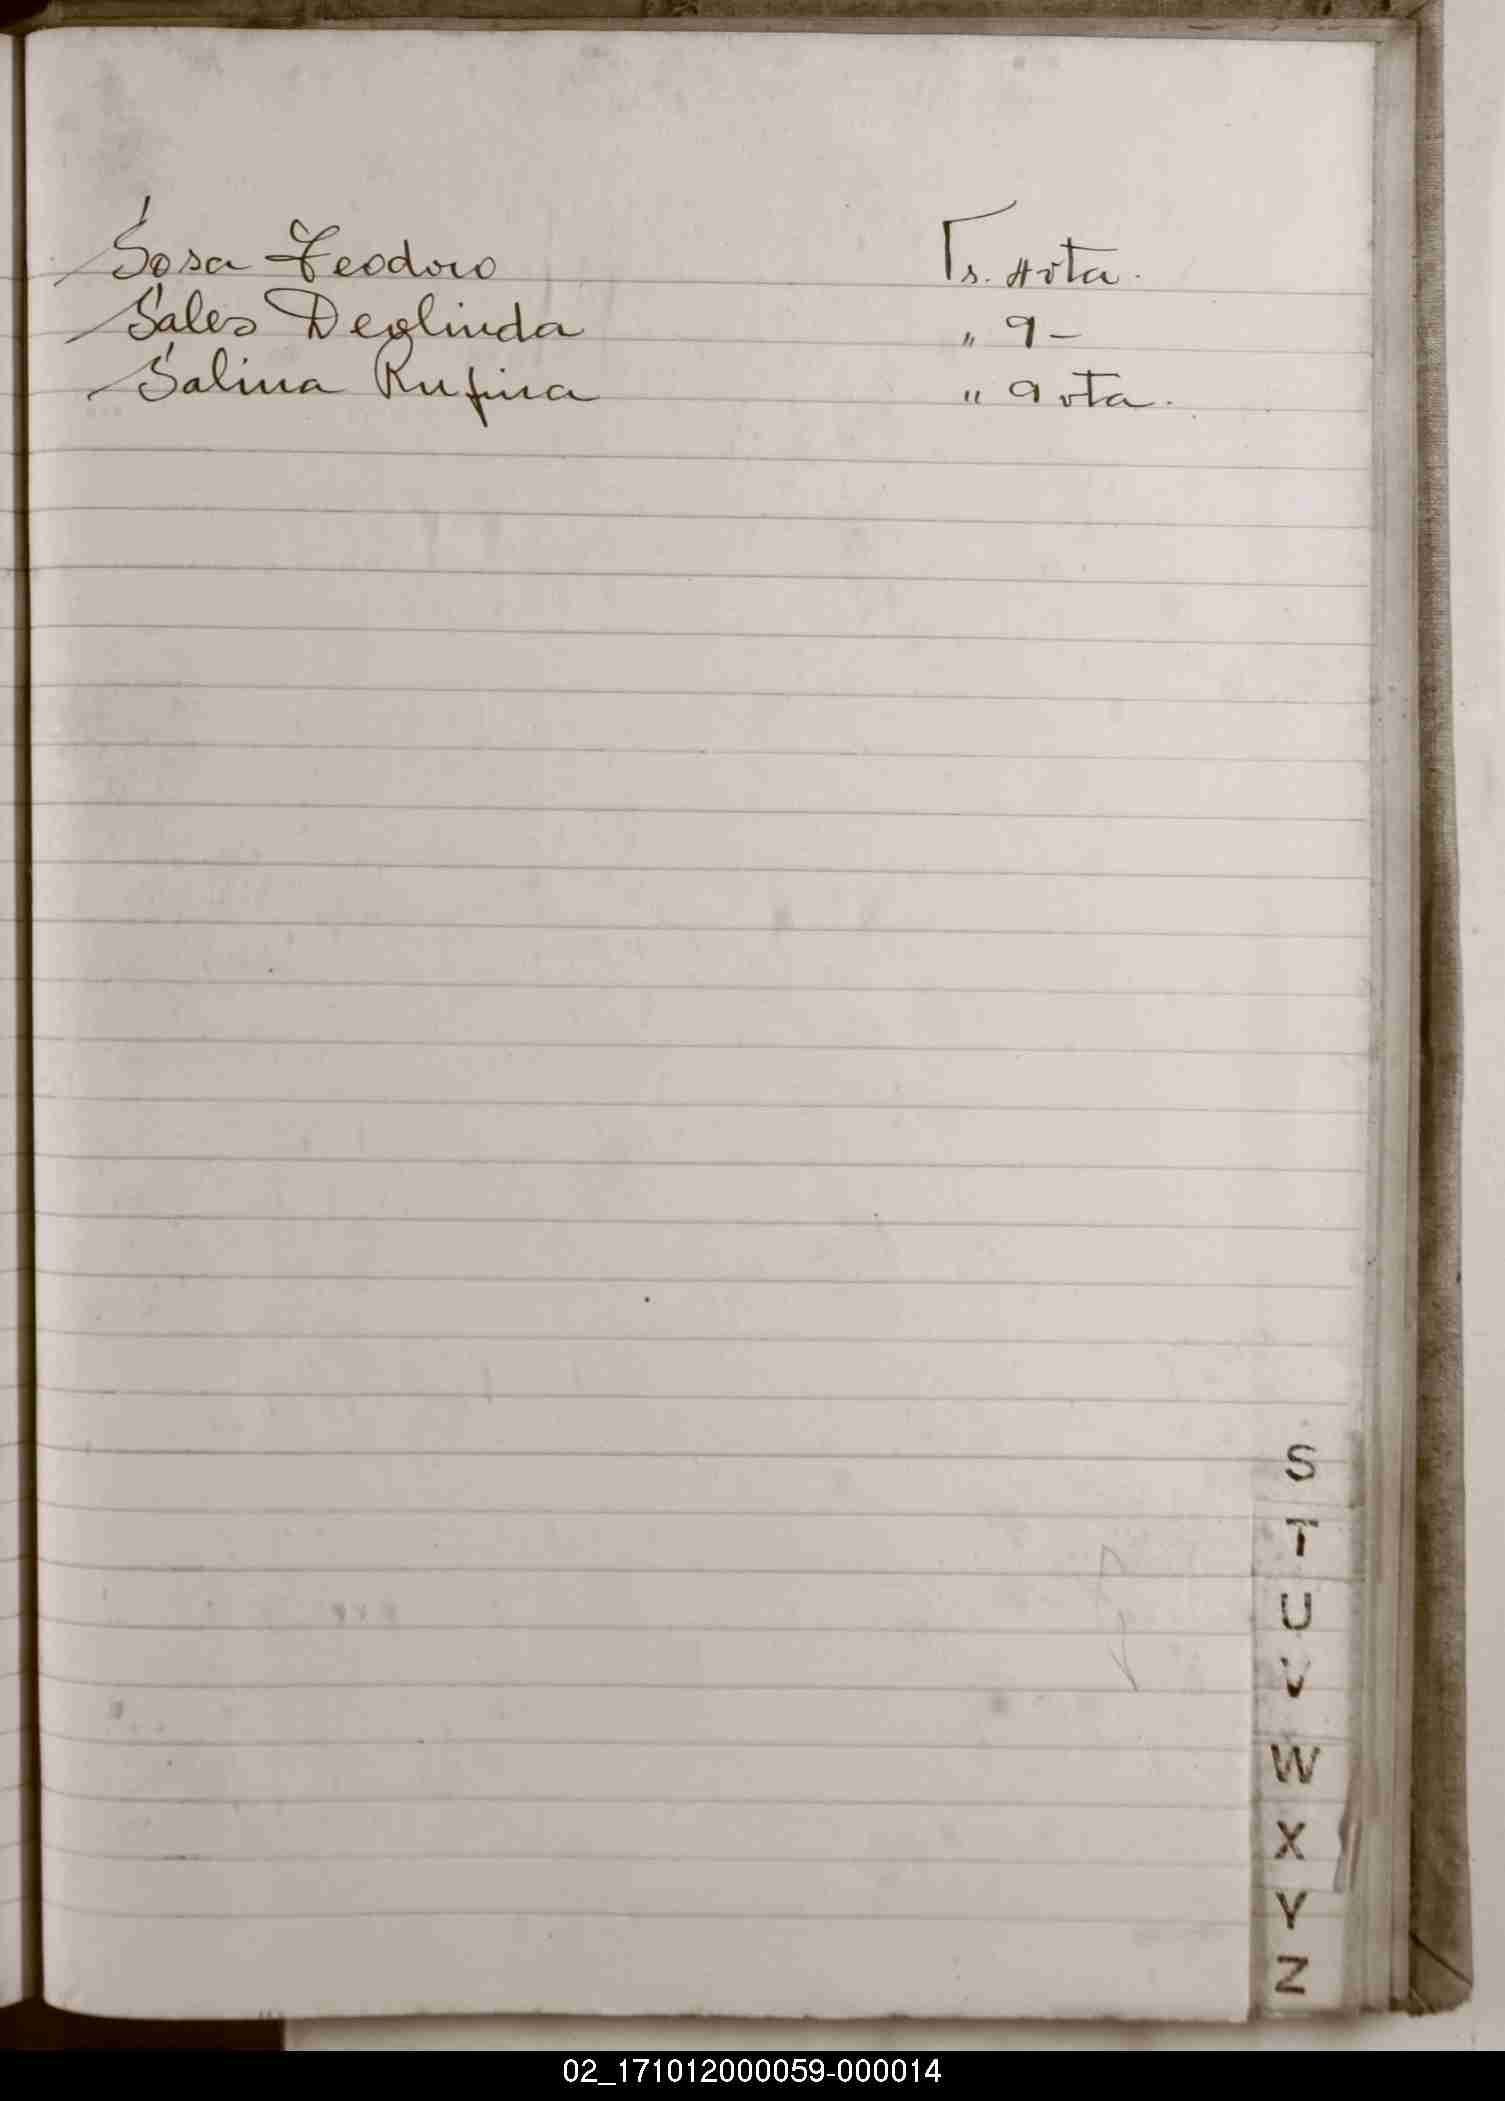 Sosa Teodoro Fs. 4 vta.
Sales Deolinda " 9 -
Salina Rufina " 9 vta.
S
T
U
V
W
X
Y
Z
02_171012000059-000014